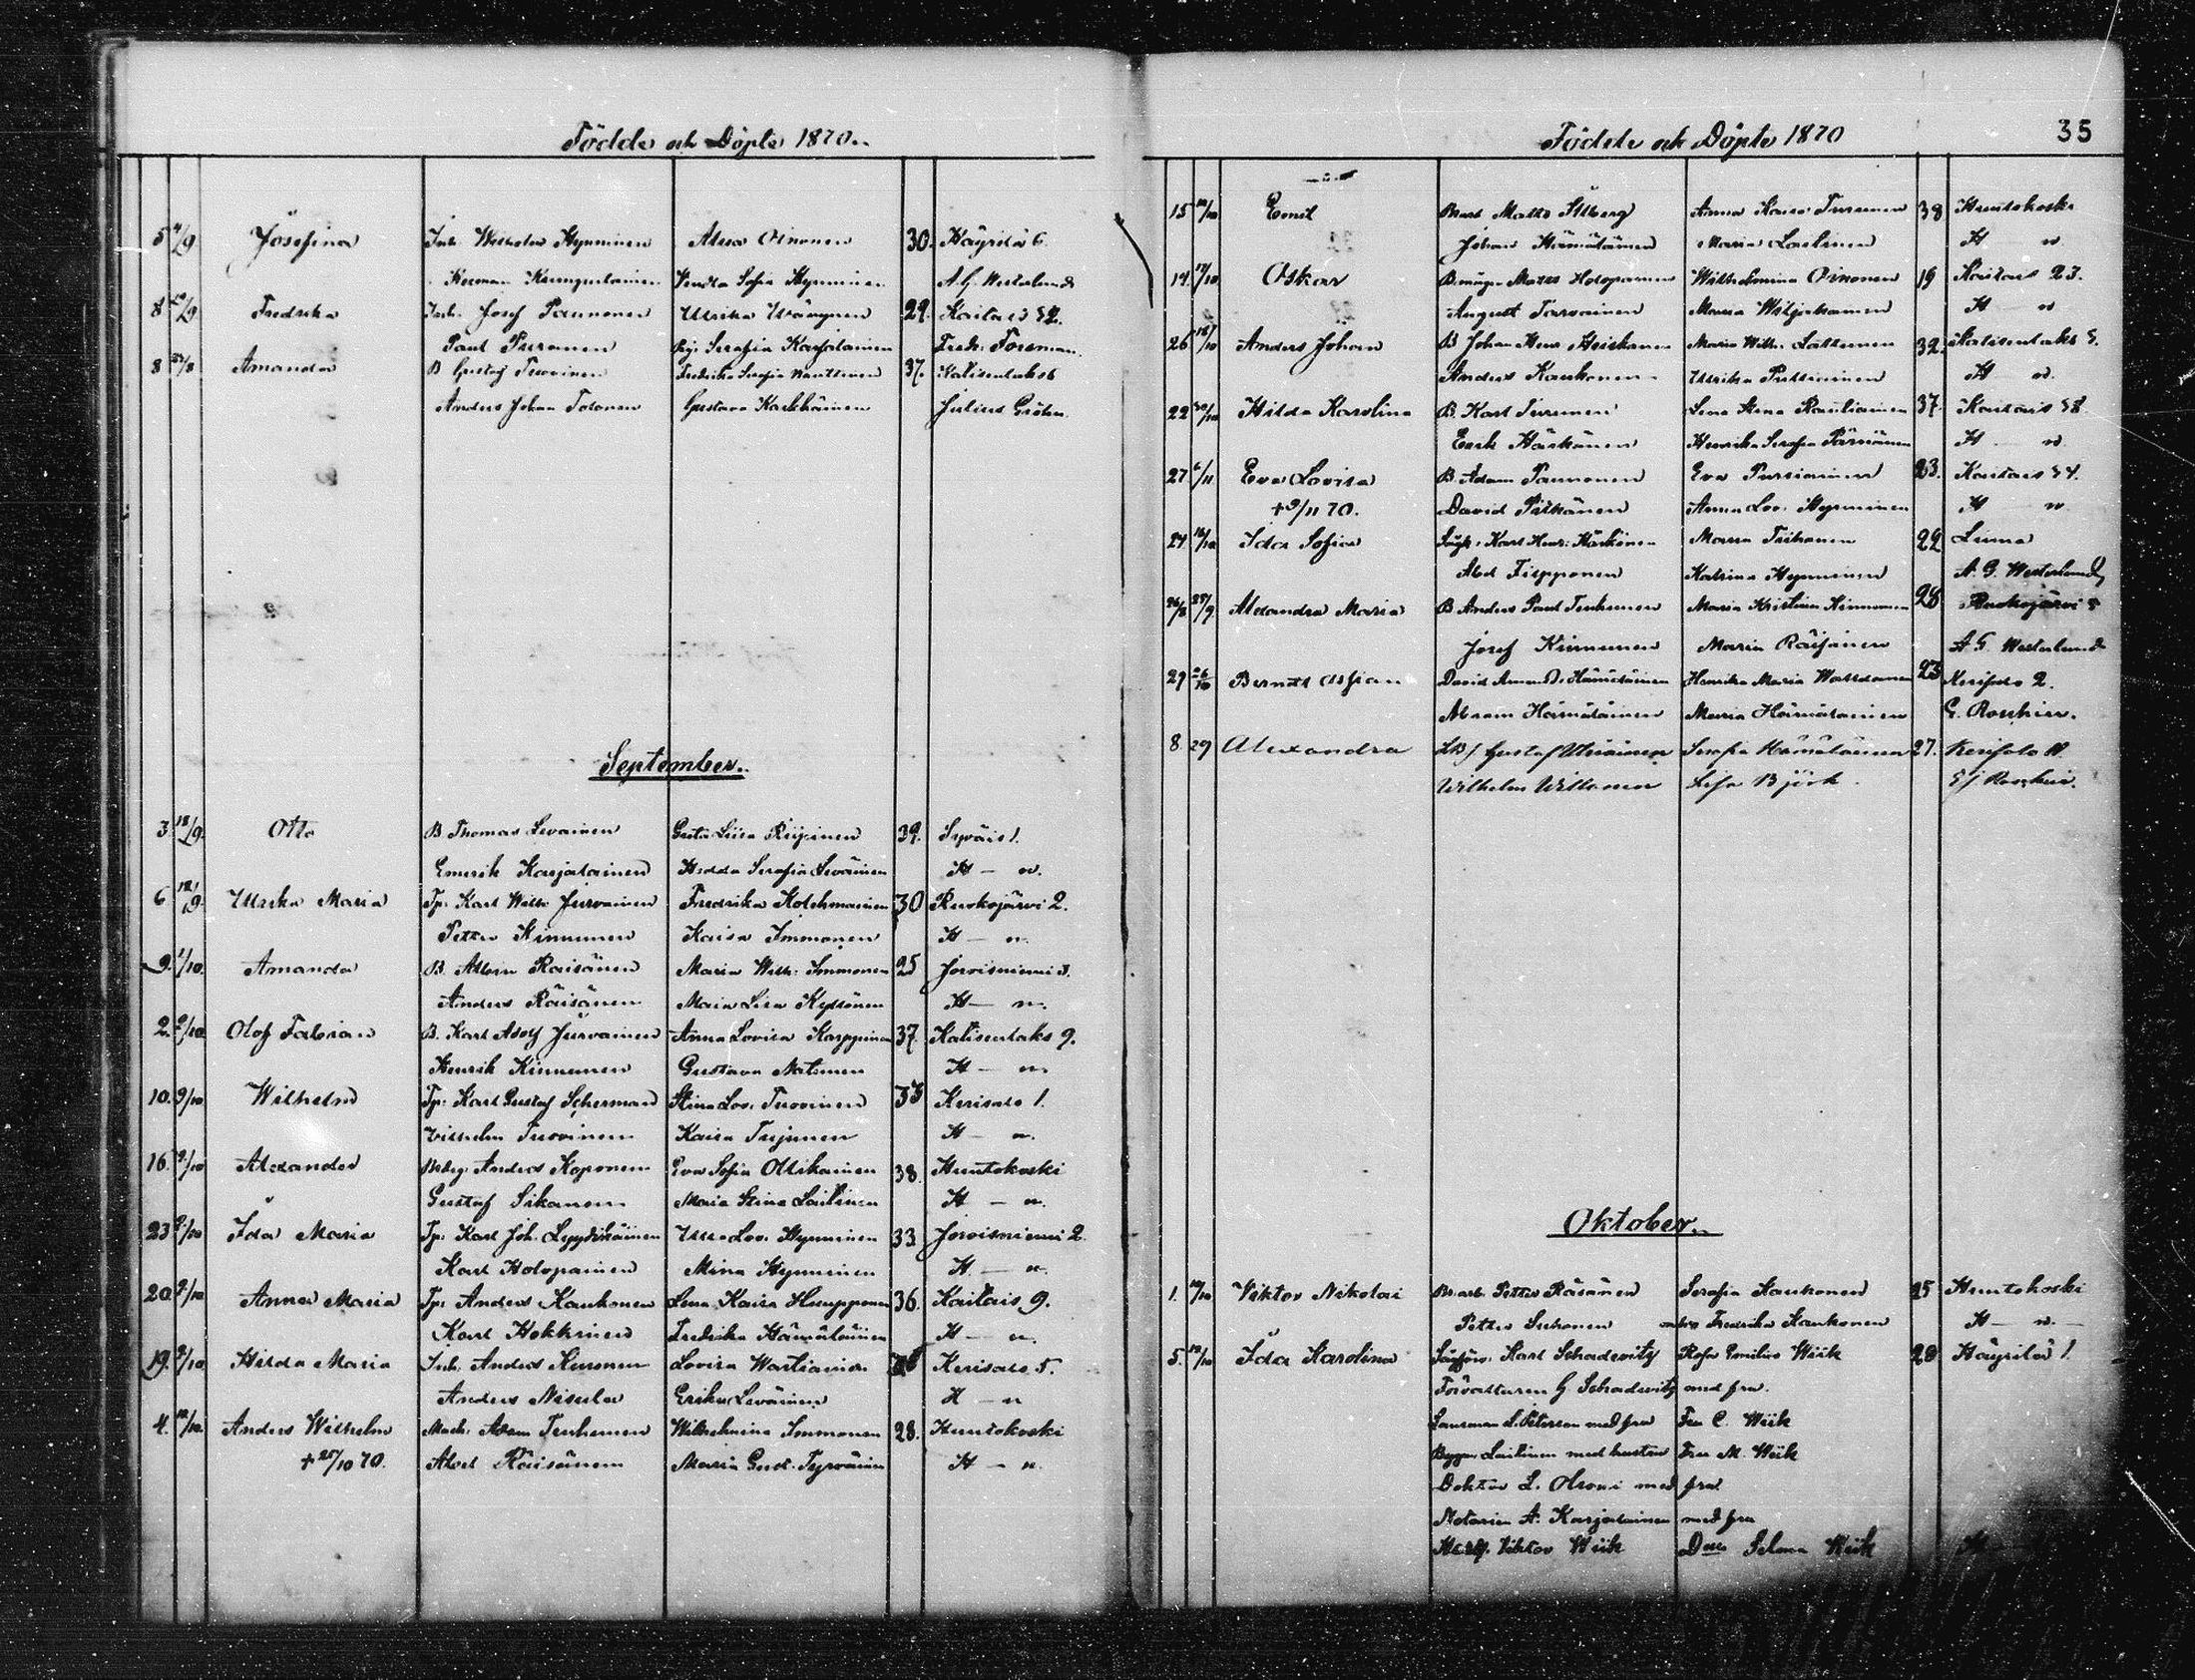 Födde och Döpte 1870.
5 4/9 Josefina Inh. Wilhelm Hynninen Alexa Oinonen 30. Käyrilä 6.
Herman Kumpulainen Vendla Sofia Hynninen A. G. Westerlund
8 Fredrika Inh. Josef Paunonen Ulrika Wäänänen 29. Kaitais 52.
Paul Puronen Serafia Karjalainen Fredr. Forsman.
8 Amanda B Gustaf Tuovinen Fredrika Serafia 37. Kalisentaks 6
Anders Johan Tolonen Gustava Karkkäinen Julius Gröhn
September.
3 18/9 Otto B Thomas Levainen Greta Liisa Piipinen 39. Syväis 1.
Emerik Karjalainen Hedda Serafia Leväinen H — n.
6 18/9 Ulrika Maria Tp. Karl Wilh. Jurvainen Fredrika Kolehmainen 30 Ruokojärvi 2.
Petter Kinnunen Kaisa Immonen H — n.
9. 1/10. Amanda B. Albin Räisänen Maria Wilh. Immonen 25 Joroisniemi 3.
Anders Räisänen Maria Lisa Kyllönen H — n.
2. 2/10 Olof Fabian B. Karl Adolf Jurvainen Anna Lovisa Karppinen 37. Kalisentaks 9.
Henrik Kinnunen Gustava Natunen H — n
10. 9/10 Wilhelm Tp. Karl Gustaf Scherman Stina Lov. Tuovinen 33 Kerisalo 1.
Vilhelm Tuovinen Kaisa H — n.
16. 9/10 Alexander Anders Koponen Eva Sofia Ollikainen 38. Huutokoski
Gustaf Sikanen Maria Stina Laitinen H — n.
23 9/10 Ida Maria Tp. Karl Joh. Lyytikäinen Ulla Lov. Hynninen 33. Joroisniemi 2.
Karl Holopainen Mina Hynninen H. — n.
20. 9/10 Anna Maria Tp. Anders Kaukonen Lena Kaisa Huupponen 36. Kaitais 9.
Karl Hokkinen Fredrika Hämäläinen H — n.
19. 9/10 Hilda Maria Inh. Anders Kinnunen Lovisa Wartiainen Kerisalo 5.
Anders Nisula Erika Leväinen H — n
4. 10/10. Anders Wilhelm Adam Tenhunen Wilhelmina Immonen 28. Huutokoski
+ 25/10 70. Abel Räisänen Maria Gust. Tyrväinen H — n.
Födde och Döpte 1870 35
15 Emil Matts Anna Kaisa Turunen 38 Huutokoski
Johan Hämäläinen Maria Laitinen H — n
14. 17/10 Oskar Matts Holopainen Wilhelmina Oinonen 19 Kaitais 23.
August Tarvainen Maria H — n
26 Anders Johan B Johan Henr. Heiskanen Maria Wilh. Lättinen 32. Kalisentaks 5.
Anders Kaukonen Ulrika Pulliainen H — n.
22 30/10 Hilda Karolina B. Karl Turunen Lena Stina Rautiainen 37. Kaitais 58.
Erik Härkönen Henrika Serafia Pärnänen H — n.
27. 6/11 Eva Lovisa B. Adam Paunonen Eva Pursiainen 23. Kaitais 54.
+ 9/11 70. David Pitkänen Anna Lov. Hynninen H — n
24. 16/10 Ida Sofia Karl Henr. Härkönen Maria Tiihonen 22 Luma
Abel Filpponen Katrina Hynninen A. G. Westerlund
26/8 25/9 Alexandra Maria B Anders Paul Tenhunen Maria Kristina Kinnunen 28 Ruokojärvi 5
Josef Kinnunen Maria Räisänen A. G. Westerlund
29 Berndt David Hämäläinen Henrika Maria 23 Kerisalo 2.
Abram Hämäläinen Maria Hämäläinen G. Roschier.
8. 29 Alexandra Gustaf Serafia Hämäläinen 27. Kerisalo
Wilhelm Lisa Björk Roschier.
Oktober.
1. Viktor Nikolai Petter Räsänen Serafia Kaukonen 25 Huutokoski
Petter Fredrika Kaukonen H — n. —
5. Ida Karolina Karl Schadevitz Rosa Emilia Wiik 28 Käyrilä 1.
Förvaltaren G. Schadevitz med fru.
Länsman L. Peterson med fru Fru C. Wiik
Laitinen med hustru Fru M. Wiik
Doktor L. med fru
Notarien A. Karjalainen med fru
Viktor Wiik Selma Wiik H